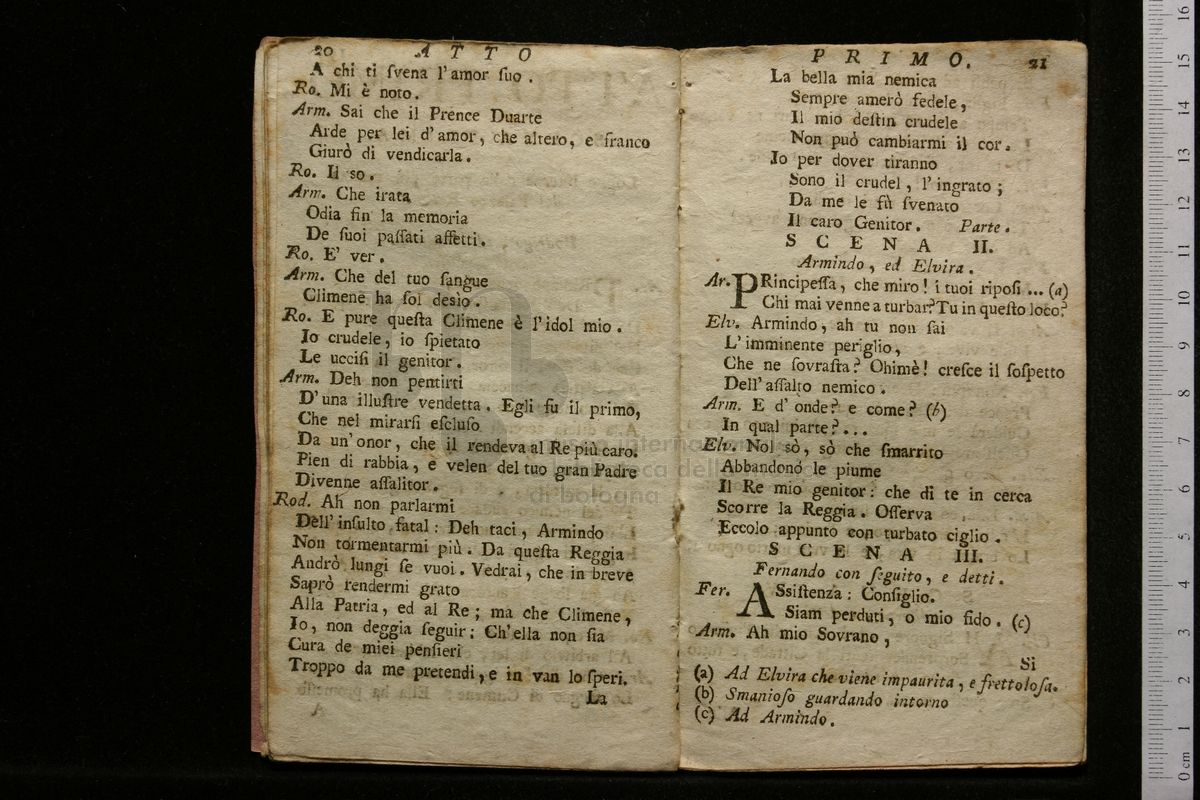 20 ATTO
A chi ti ſvena l'amor ſuo.
Ro. Mi è noto.
Arm. Sai che il Prence Duarte
Arde per lei d'amor, che altero, e franco
Giurò di vendicarla.
Ro. Il so.
Arm. Che irata
Odia fin la memoria
De ſuoi paſſati affetti.
Ro. E' ver.
Arm. Che del tuo ſangue
Climene ha ſol desìo.
Ro. E pure queſta Climene è l'idol mio.
Io crudele, io ſpietato
Le ucciſi il genitor.
Arm. Deh non pentirti
D'una illuſtre vendetta. Egli fu il primo,
Che nel mirarſi eſcluſo
Da un'onor, che il rendeva al Re più caro.
Pien di rabbia, e velen del tuo gran Padre
Divenne aſſalitor.
Rod. Ah non parlarmi
Dell'inſulto fatal: Deh taci, Armindo
Non tormentarmi più. Da queſta Reggia
Andrò lungi ſe vuoi. Vedrai, che in breve
Saprò rendermi grato
Alla Patria, ed al Re; ma che Climene,
Io, non deggia ſeguir; Ch'ella non ſia
Cura de miei penſieri
Troppo da me pretendi, e in van lo ſperi.
La
PRIMO. 21
La bella mia nemica
Sempre amerò fedele,
Il mio deſtin crudele
Non può cambiarmi il cor.
Io per dover tiranno
Sono il crudel, l'ingrato;
Da me le fù ſvenato
Il caro Genitor. Parte.
SCENA II.
Armindo, ed Elvira.
Ar. PRincipeſſa, che miro! i tuoi ripoſi ... (a)
Chi mai venne a turbar? Tu in queſto loco?
Elv. Armindo, ah tu non ſai
L'imminente periglio,
Che ne ſovraſta? Ohimè! creſce il ſoſpetto
Dell'aſſalto nemico.
Arm. E d'onde? e come? (b)
In qual parte?...
Elv. Nol sò, sò che ſmarrito
Abbandonò le piume
Il Re mio genitor: che di te in cerca
Scorre la Reggia. Oſſerva
Eccolo appunto con turbato ciglio.
SCENA III.
Fernando con ſeguito, e detti.
Fer. ASſiſtenza: Conſiglio.
Siam perduti, o mio fido. (c)
Arm. Ah mio Sovrano,
Si
(a) Ad Elvira che viene impaurita, e frettoloſa.
(b) Smanioſo guardando intorno
(c) Ad Armindo.
di bologna
0 cm 1 2 3 4 5 6 7 8 9 10 11 12 13 14 15 16